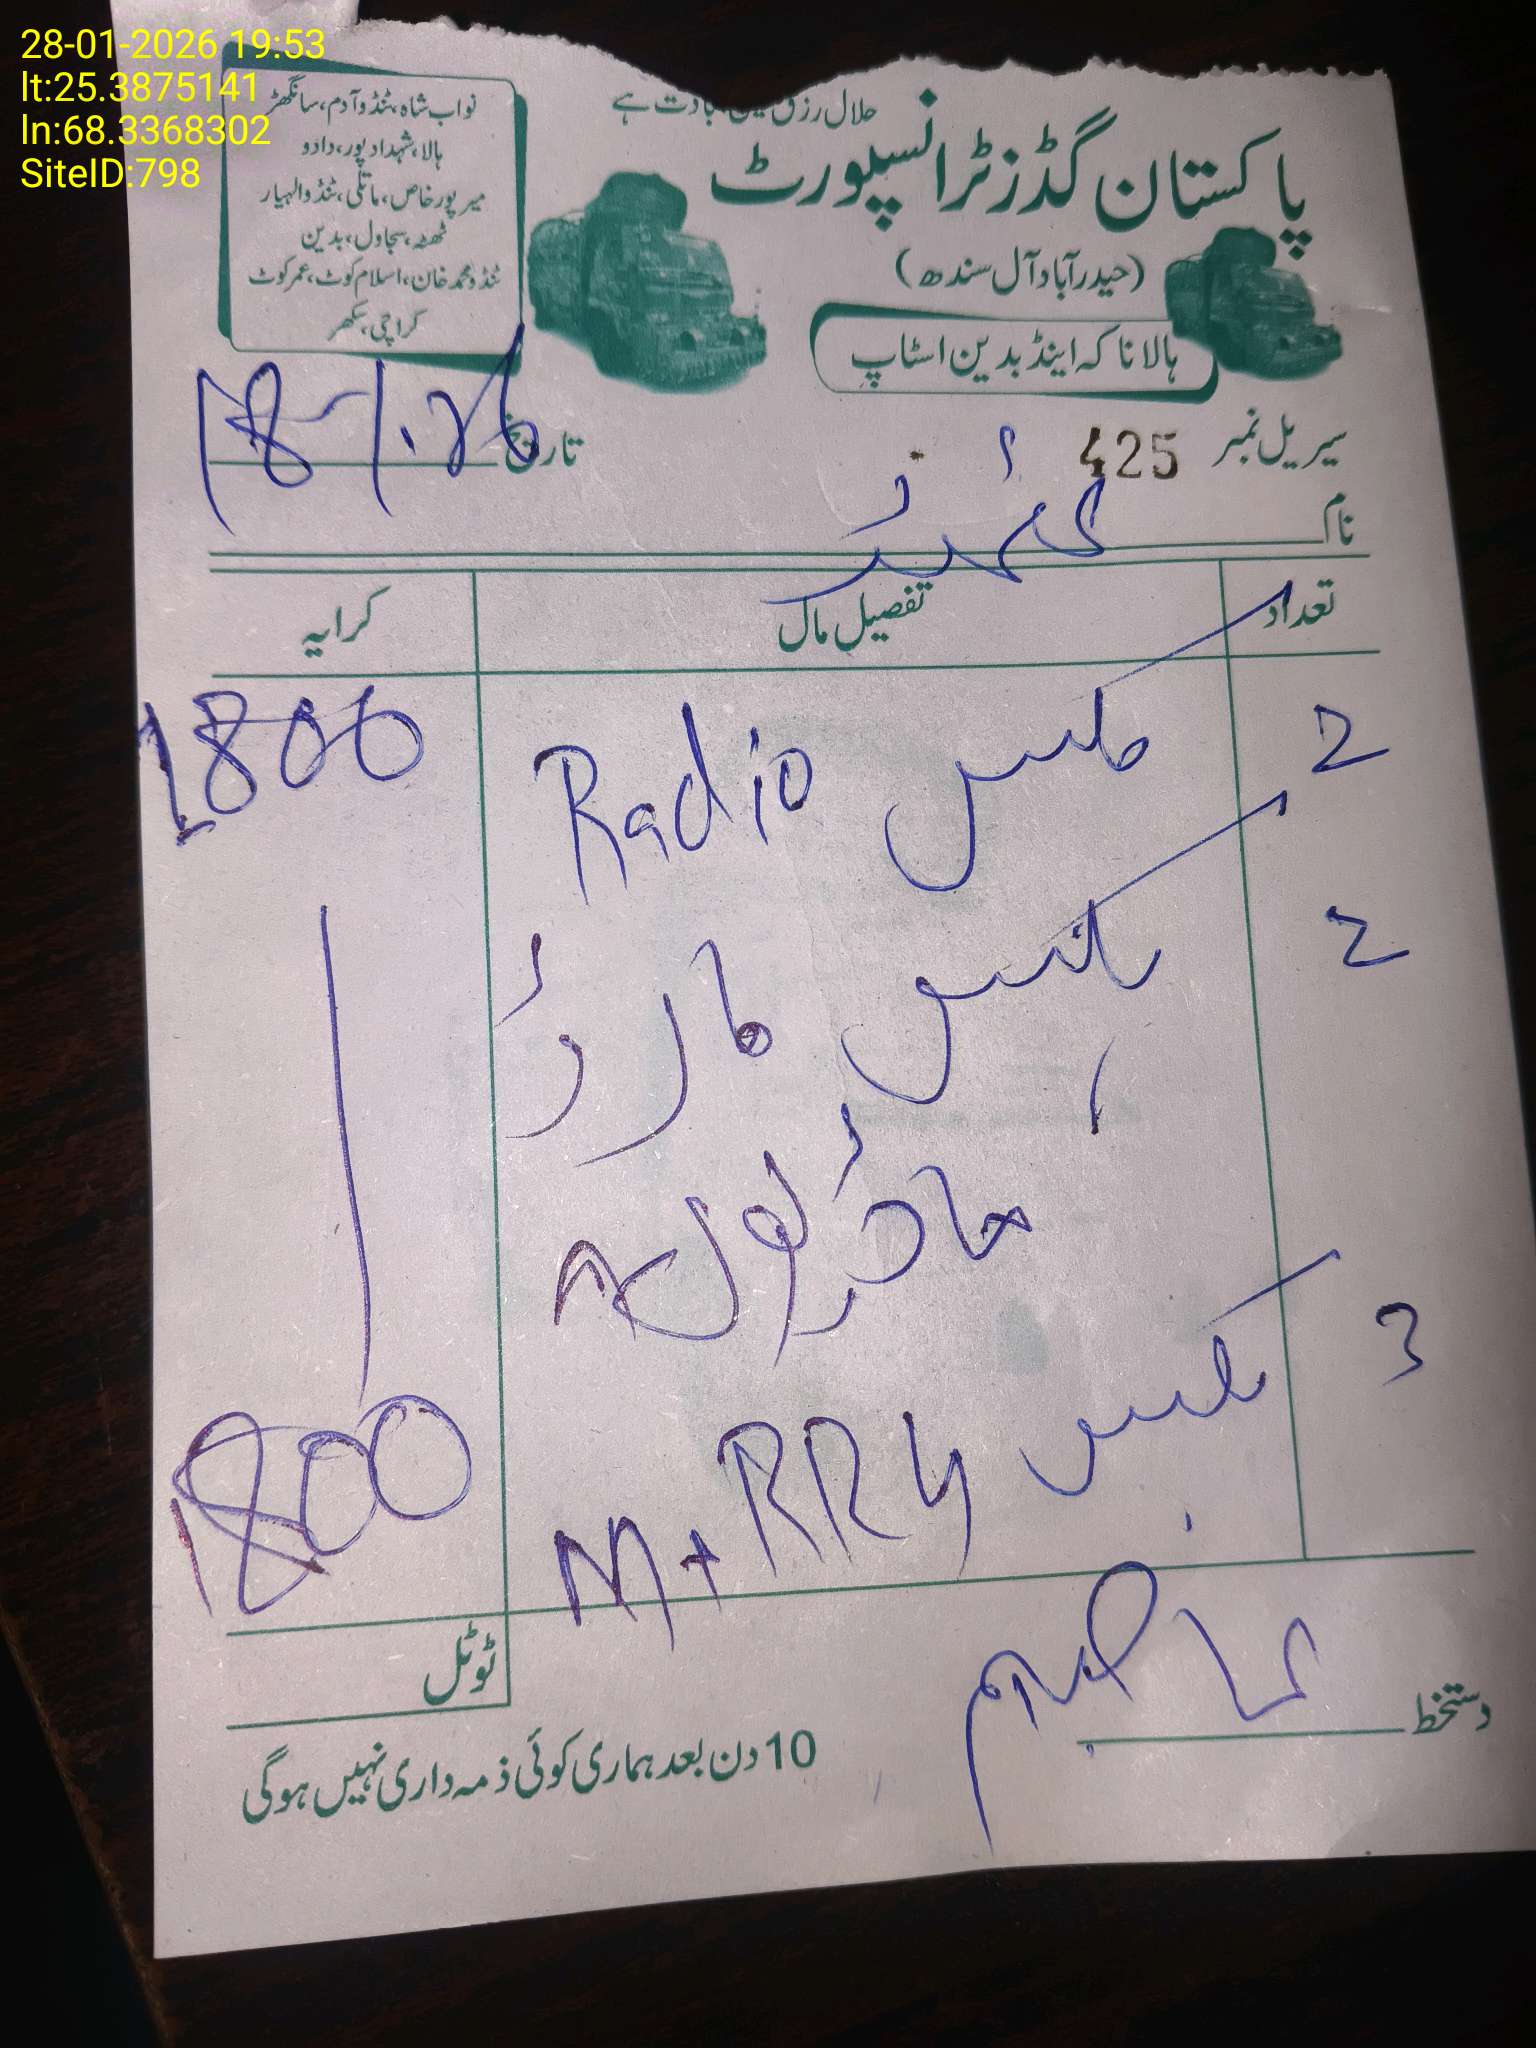 28-01-2026 19:53
lt:25.3875141
ln:68.3368302
SiteID:798
حلال رزق عین عبادت ہے
پاکستان گڈز ٹرانسپورٹ
(حیدرآباد آل سندھ)
ہالا ناکہ اینڈ بدین اسٹاپ
نواب شاہ، ٹنڈوآدم، سانگھڑ
ہالا، شہداد پور، دادو
میرپور خاص، ماتلی، ٹنڈوالہیار
ٹھٹھہ، سجاول، بدین
ٹنڈو محمد خان، اسلام کوٹ، عمرکوٹ
کراچی، سکھر
سیریل نمبر 425
تاریخ
نام
تعداد تفصیل مال کرایہ
2 Radio 1800
2
3 بکس RRU + M 1800
ٹوٹل
دستخط
10 دن بعد ہماری کوئی ذمہ داری نہیں ہوگی